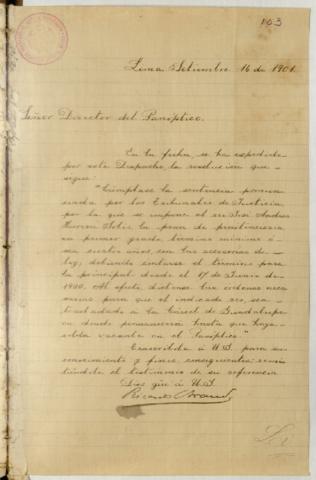 163
Lima, Setiembre 16 de 1901.
Señor Director del Panóptico.
En la fecha, se ha expedido
por este Despacho la resolución que
sigue:
"Cúmplase la sentencia pronun
ciada por los Tribunales de Justicia
por la que se impone al reo José Andres
la pena de penitenciaria
en primer grado, término mínimo ó
sea cuatro años, con las accesorias de
ley, debiendo contarse el término para
la principal desde el 17 de Junio de
1900. Al efecto, díctense las órdenes nece
sarias para que el indicado reo, sea
trasladado á la Cárcel de Guadalupe
en donde permanecerá hasta que haya
celda vacante en el Panóptico."
Trascríbola á U.S. para su
conocimiento y fines consiguientes; remi
tiéndole el testimonio de su referencia
Dios gue á U.S.
Ricardo